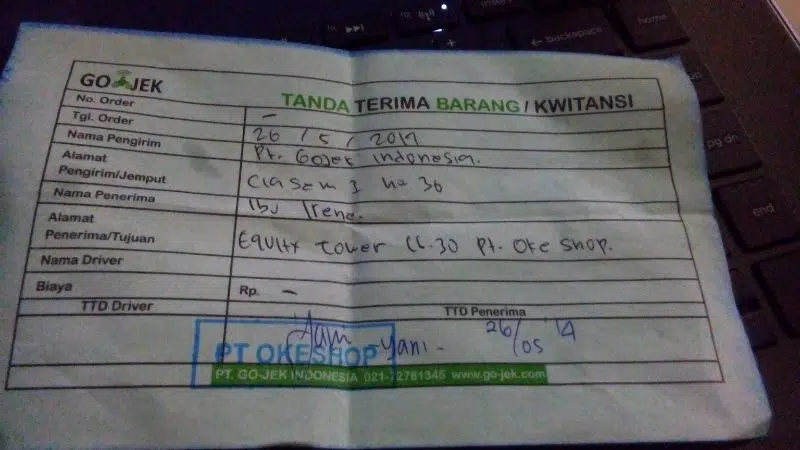 GO-JEK
TANDA TERIMA BARANG / KWITANSI
No. Order -
Tgl. Order 26 / 5 / 2014
Nama Pengirim Pt. Gojek Indonesia.
Alamat
Pengirim/Jemput Ciasem I no 36
Nama Penerima Ibu Irene.
Alamat
Penerima/Tujuan Equity tower Lt.30 Pt. Oke Shop.
Nama Driver
Biaya Rp. -
TTD Driver TTD Penerima
Yani - 26/05 '14
PT OKESHOP
PT. GO-JEK INDONESIA 021-72761345 www.go-jek.com
← backspace
home
pg dn
end